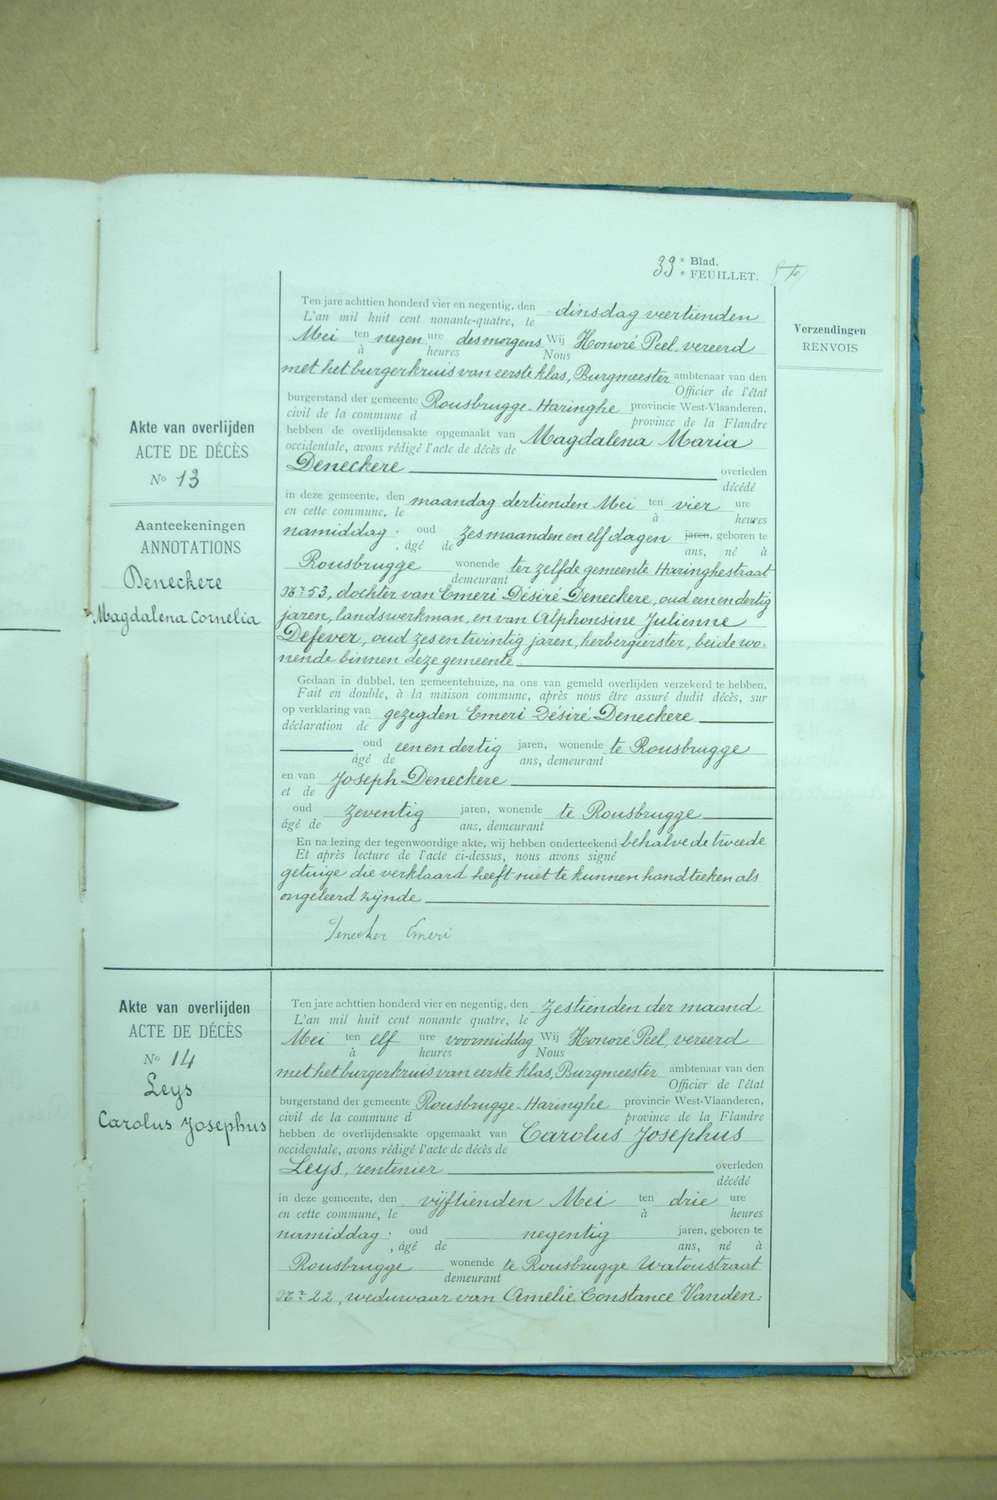 33e Blad.
e FEUILLET.
Verzendingen
RENVOIS
Akte van overlijden
ACTE DE DÉCÈS
No 13
Aanteekeningen
ANNOTATIONS
Deneckere
Magdalena Cornelia
Ten jare achttien honderd vier en negentig, den dinsdag veertienden
L'an mil huit cent nonante-quatre, le
Mei ten negen ure desmorgens Wij Honoré Peel, vereerd
à heures Nous
met het burgerkruis van eerste klas, Burgmeester ambtenaar van den
Officier de l'état
burgerstand der gemeente Rousbrugge-Haringhe provincie West-Vlaanderen,
civil de la commune d province de la Flandre
hebben de overlijdensakte opgemaakt van Magdalena Maria
occidentale, avons rédigé l'acte de décès de
Deneckere overleden
décédé
in deze gemeente, den maandag dertienden Mei ten vier ure
en cette commune, le à heures
namiddag; oud zes maanden en elf dagen jaren, geboren te
, âgé de ans, né à
Rousbrugge wonende ter zelfde gemeente Haringhestraat
demeurant
No 53, dochter van Emeri Désiré Deneckere, oud eenendertig
jaren, landswerkman, en van Alphonsine Julienne
Defever, oud zesentwintig jaren, herbergierster, beide wo-
nende binnen deze gemeente
Gedaan in dubbel, ten gemeentehuize, na ons van gemeld overlijden verzekerd te hebben,
Fait en double, à la maison commune, après nous être assuré dudit décès, sur
op verklaring van gezegden Emeri Désiré Deneckere
déclaration de
oud eenendertig jaren, wonende te Rousbrugge
âgé de ans, demeurant
en van Joseph Deneckere
et de
oud zeventig jaren, wonende te Rousbrugge
âgé de ans, demeurant
En na lezing der tegenwoordige akte, wij hebben onderteekend behalve de tweede
Et après lecture de l'acte ci-dessus, nous avons signé
getuige die verklaard heeft niet te kunnen handteeken als
ongeleerd zijnde
Denecker Emeri
Akte van overlijden
ACTE DE DÉCÈS
No 14
Leys
Carolus Josephus
Ten jare achttien honderd vier en negentig, den zestienden der maand
L'an mil huit cent nonante quatre, le
Mei ten elf ure voormiddag Wij Honoré Peel, vereerd
à heures Nous
met het burgerkruis van eerste klas, Burgmeester ambtenaar van den
Officier de l'état
burgerstand der gemeente Rousbrugge-Haringhe provincie West-Vlaanderen,
civil de la commune d province de la Flandre
hebben de overlijdensakte opgemaakt van Carolus Josephus
occidentale, avons rédigé l'acte de décès de
Leys, rentenier overleden
décédé
in deze gemeente, den vijftienden Mei ten drie ure
en cette commune, le à heures
namiddag; oud negentig jaren, geboren te
, âgé de ans, né à
Rousbrugge wonende te Rousbrugge Watoustraat
demeurant
No 22, weduwaar van Amelie Constance Vanden: